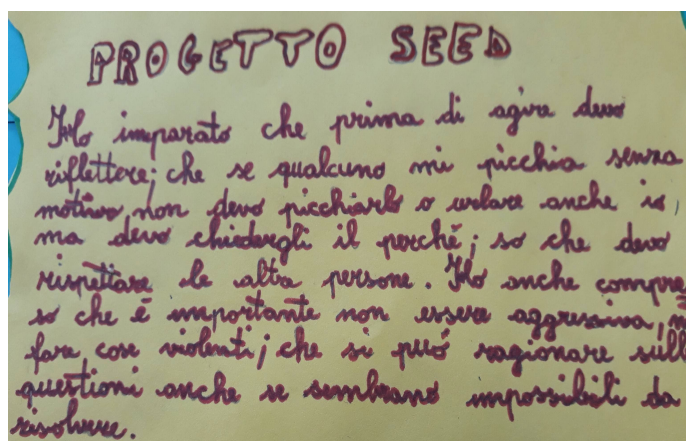 PROGETTO SEED
Ho imparato che prima di agire devo
riflettere; che se qualcuno mi picchia senza
motivo, non devo picchiarlo o urlare anche io,
ma devo chiedergli il perché; so che devo
rispettare le altre persone. Ho anche compre
so che è importante non essere aggressiva,
fare cose violenti; che si può ragionare sull
questioni anche se sembrano impossibili da
risolvere.